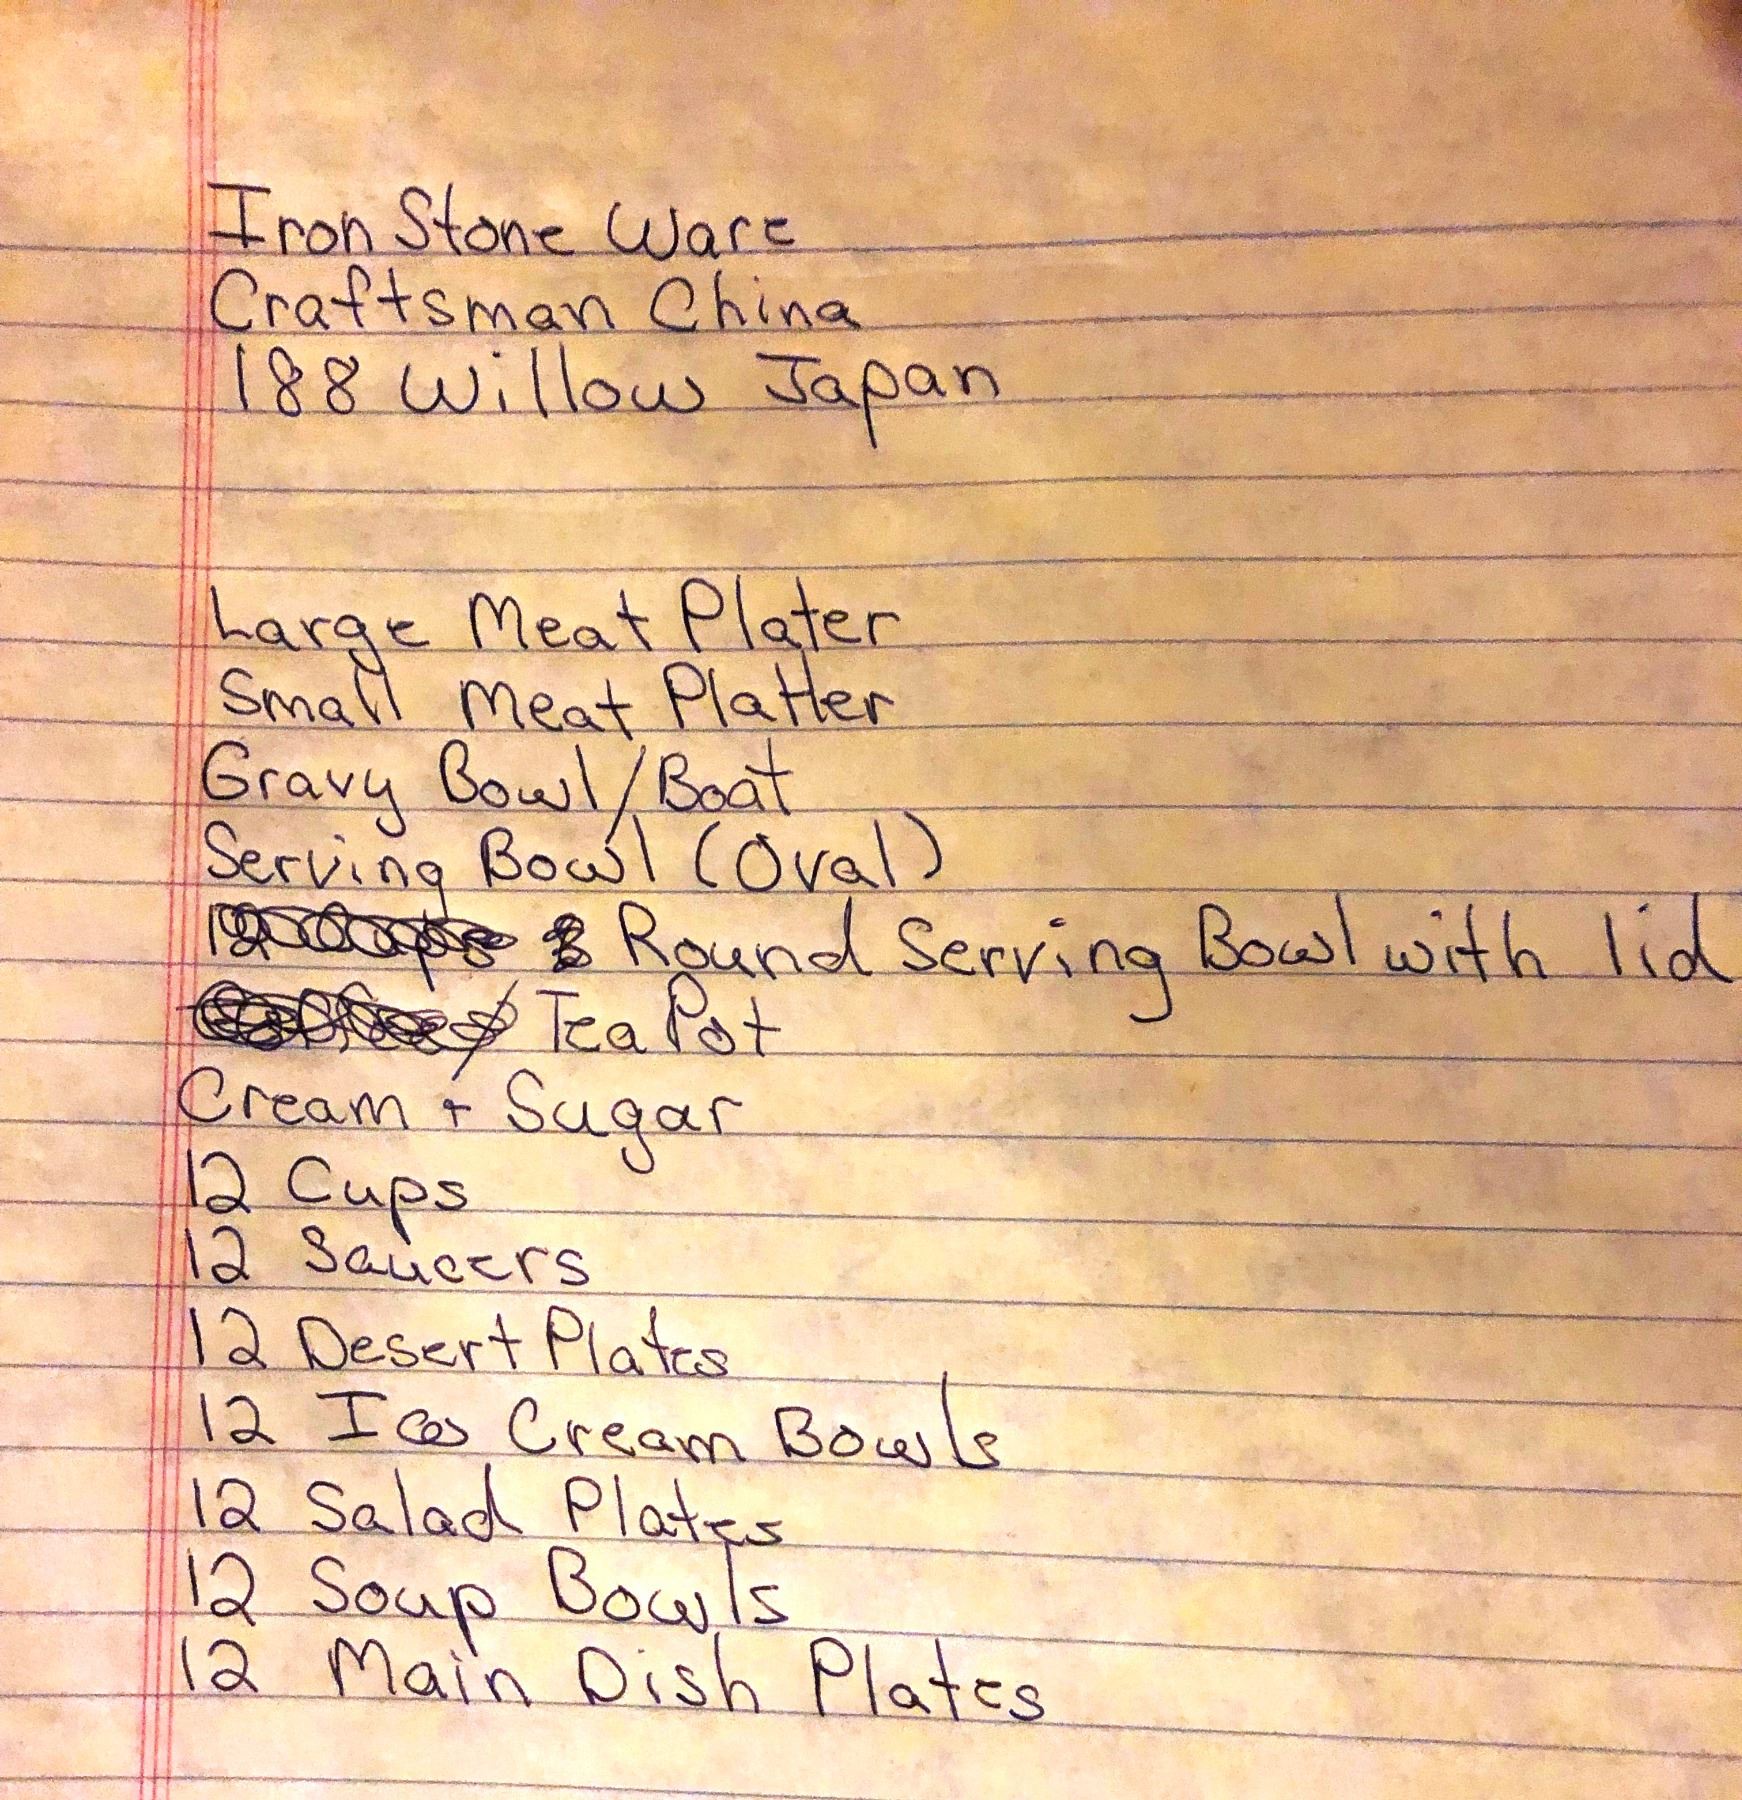 Iron Stone Ware
Craftsman China
188 Willow Japan
Large Meat Plater
Small Meat Platter
Gravy Bowl/Boat
Serving Bowl (Oval)
Round Serving Bowl with lid
Tea Pot
Cream + Sugar
12 Cups
12 Saucers
12 Desert Plates
12 Ice Cream Bowls
12 Salad Plates
12 Soup Bowls
12 Main Dish Plates